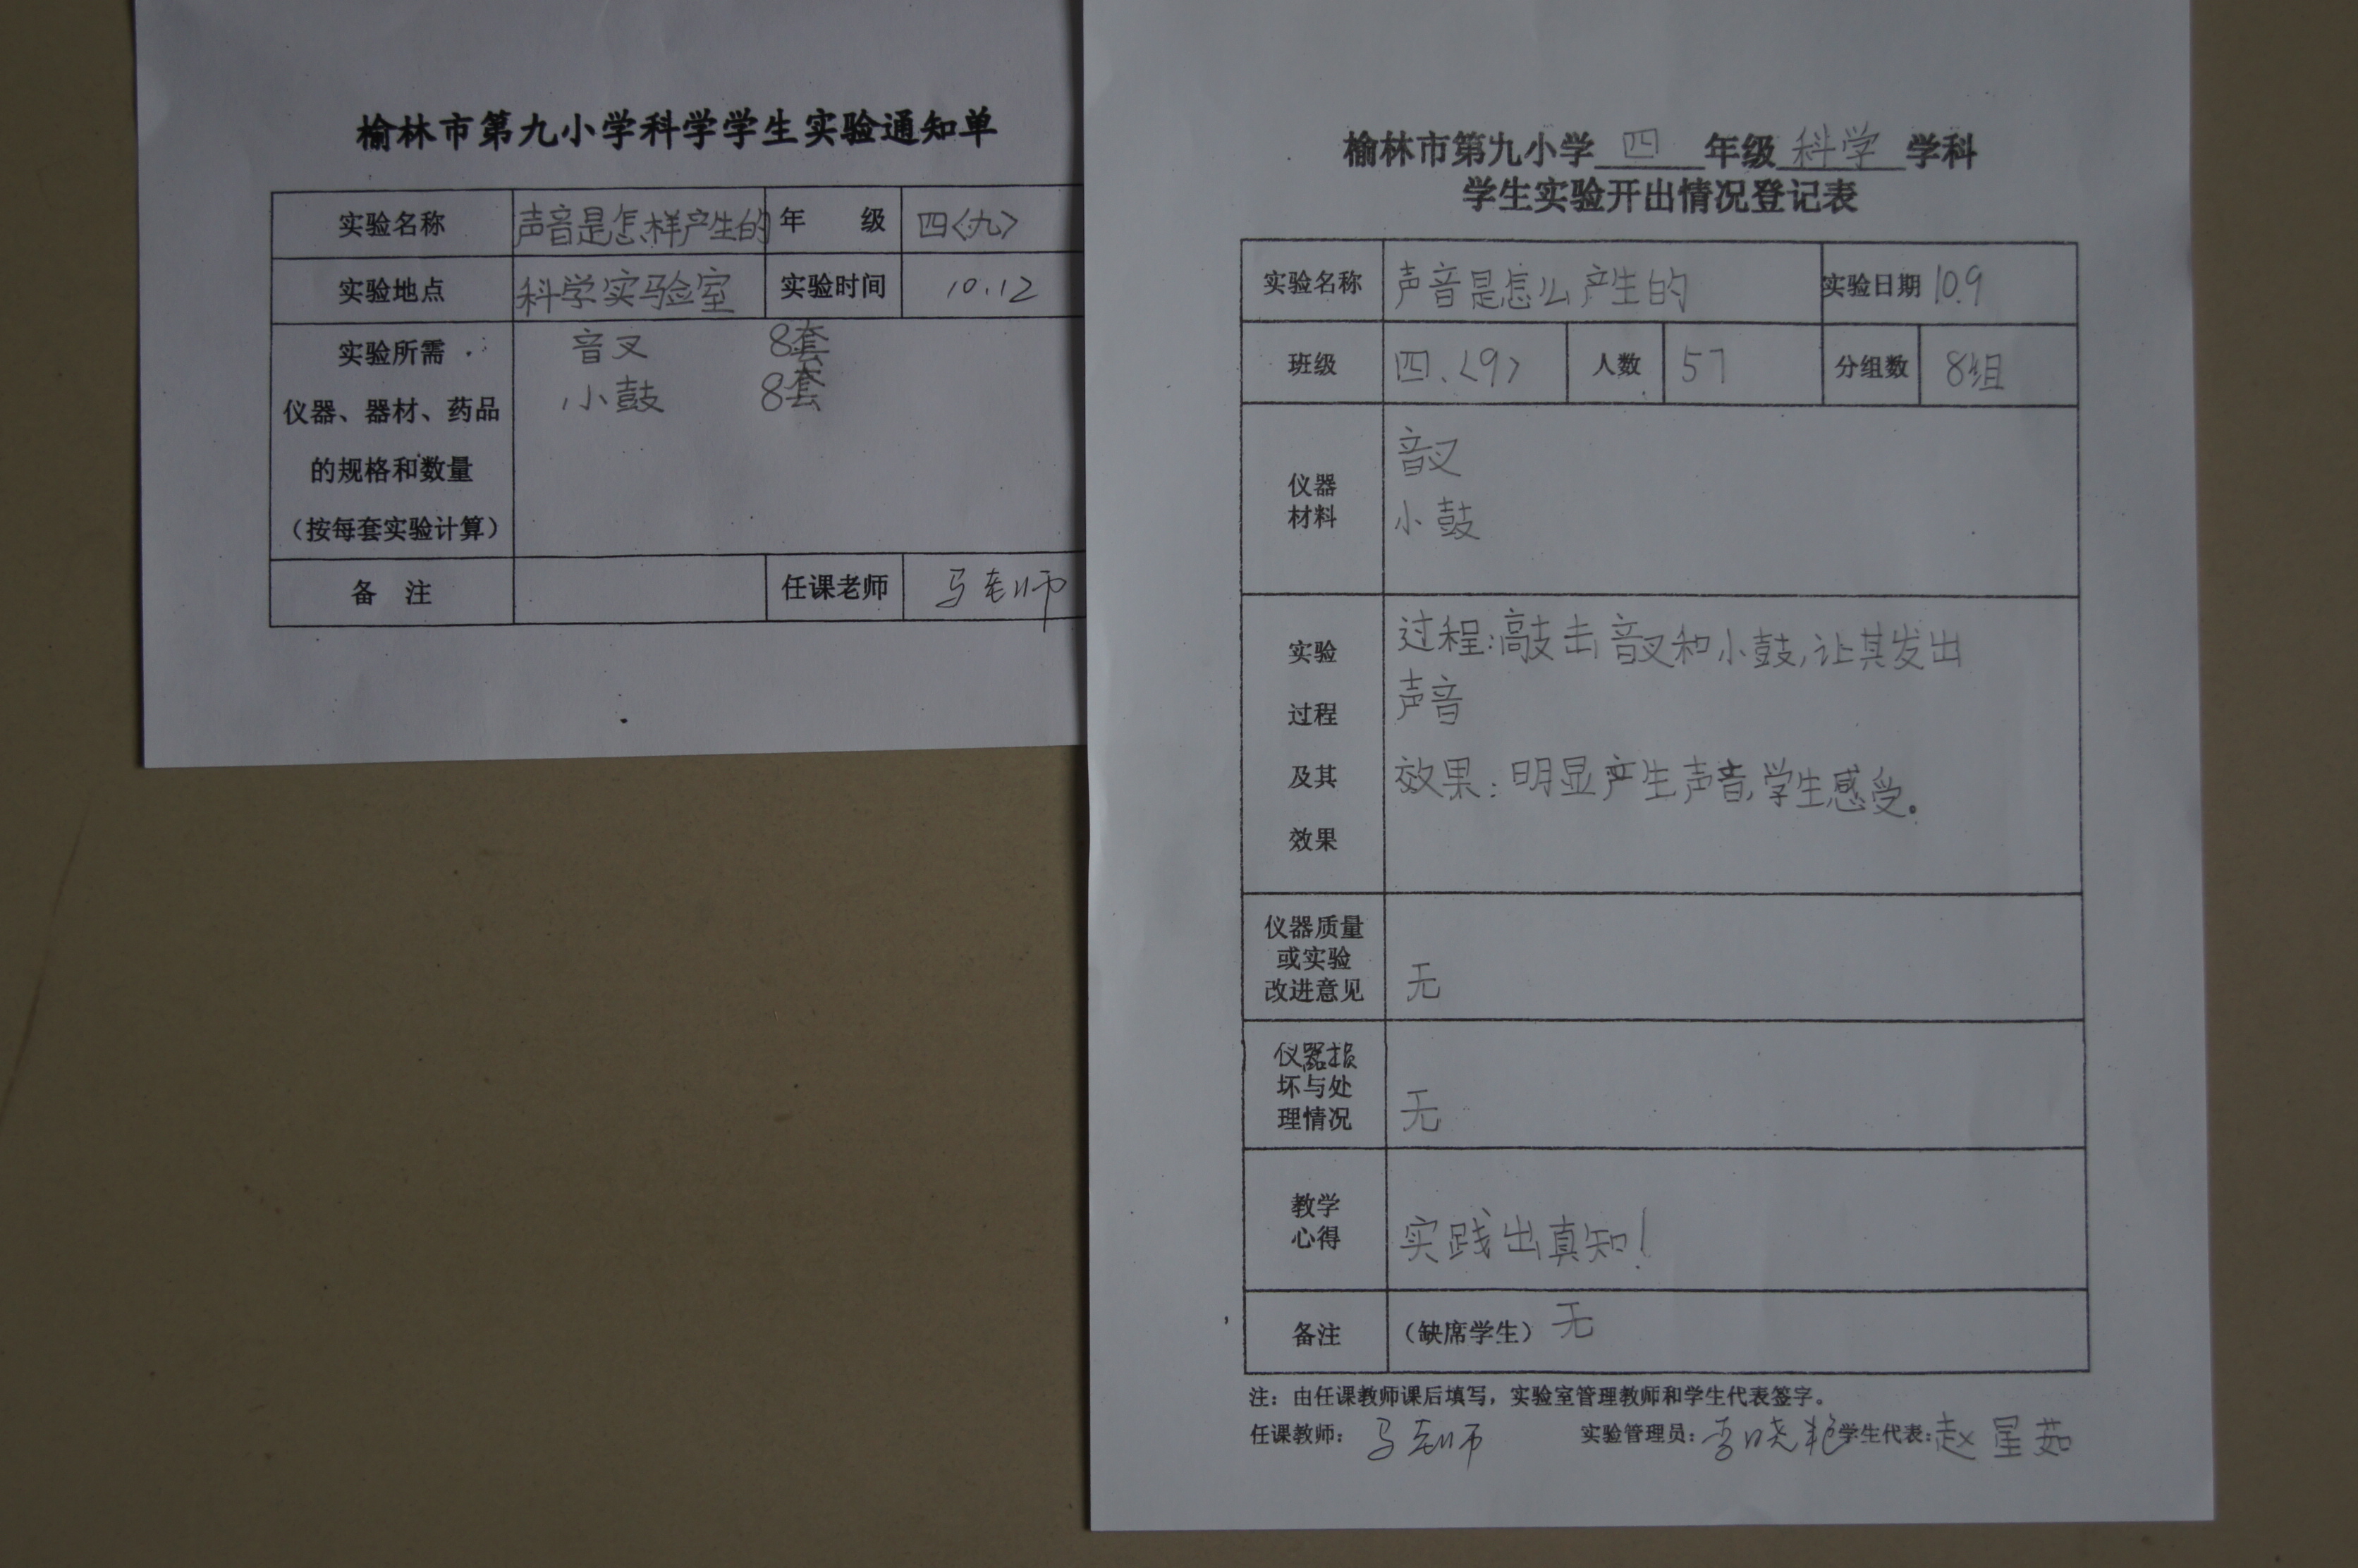 榆林市第九小学科学学生实验通知单
实验名称 声音是怎样产生的 年 级 四〈九〉
实验地点 科学实验室 实验时间 10.12
实验所需 音叉 8套
仪器、器材、药品 小鼓 8套
的规格和数量
（按每套实验计算）
备 注 任课老师 马老师
榆林市第九小学 四 年级 科学 学科
学生实验开出情况登记表
实验名称 声音是怎么产生的 实验日期 10.9
班级 四.〈9〉 人数 57 分组数 8组
仪器
材料
音叉
小鼓
实验
过程
及其
效果
过程:敲击音叉和小鼓,让其发出
声音
效果:明显产生声音,学生感受。
仪器质量
或实验
改进意见
无
仪器损
坏与处
理情况
无
教学
心得
实践出真知!
备注 （缺席学生） 无
注：由任课教师课后填写，实验室管理教师和学生代表签字。
任课教师： 马老师 实验管理员：李晓艳 学生代表：赵星茹